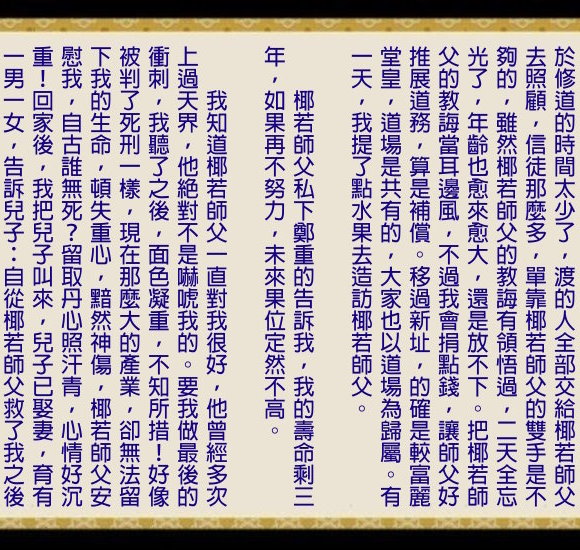 於修道的時間太少了，渡的人全部交給椰若師父
去照顧，信徒那麼多，單靠椰若師父的雙手是不
夠的，雖然椰若師父的教誨有領悟過，二天全忘
光了，年齡也愈來愈大，還是放不下。把椰若師
父的教誨當耳邊風，不過我會捐點錢，讓師父好
推展道務，算是補償。移過新址，的確是較富麗
堂皇，道場是共有的，大家也以道場為歸屬。有
一天，我提了點水果去造訪椰若師父。
椰若師父私下鄭重的告訴我，我的壽命剩三
年，如果再不努力，未來果位定然不高。
我知道椰若師父一直對我很好，他曾經多次
上過天界，他絕對不是嚇唬我的。要我做最後的
衝刺，我聽了之後，面色凝重，不知所措！好像
被判了死刑一樣，現在那麼大的產業，卻無法留
下我的生命，頓失重心，黯然神傷，椰若師父安
慰我，自古誰無死？留取丹心照汗青，心情好沉
重！回家後，我把兒子叫來，兒子已娶妻，育有
一男一女，告訴兒子：自從椰若師父救了我之後